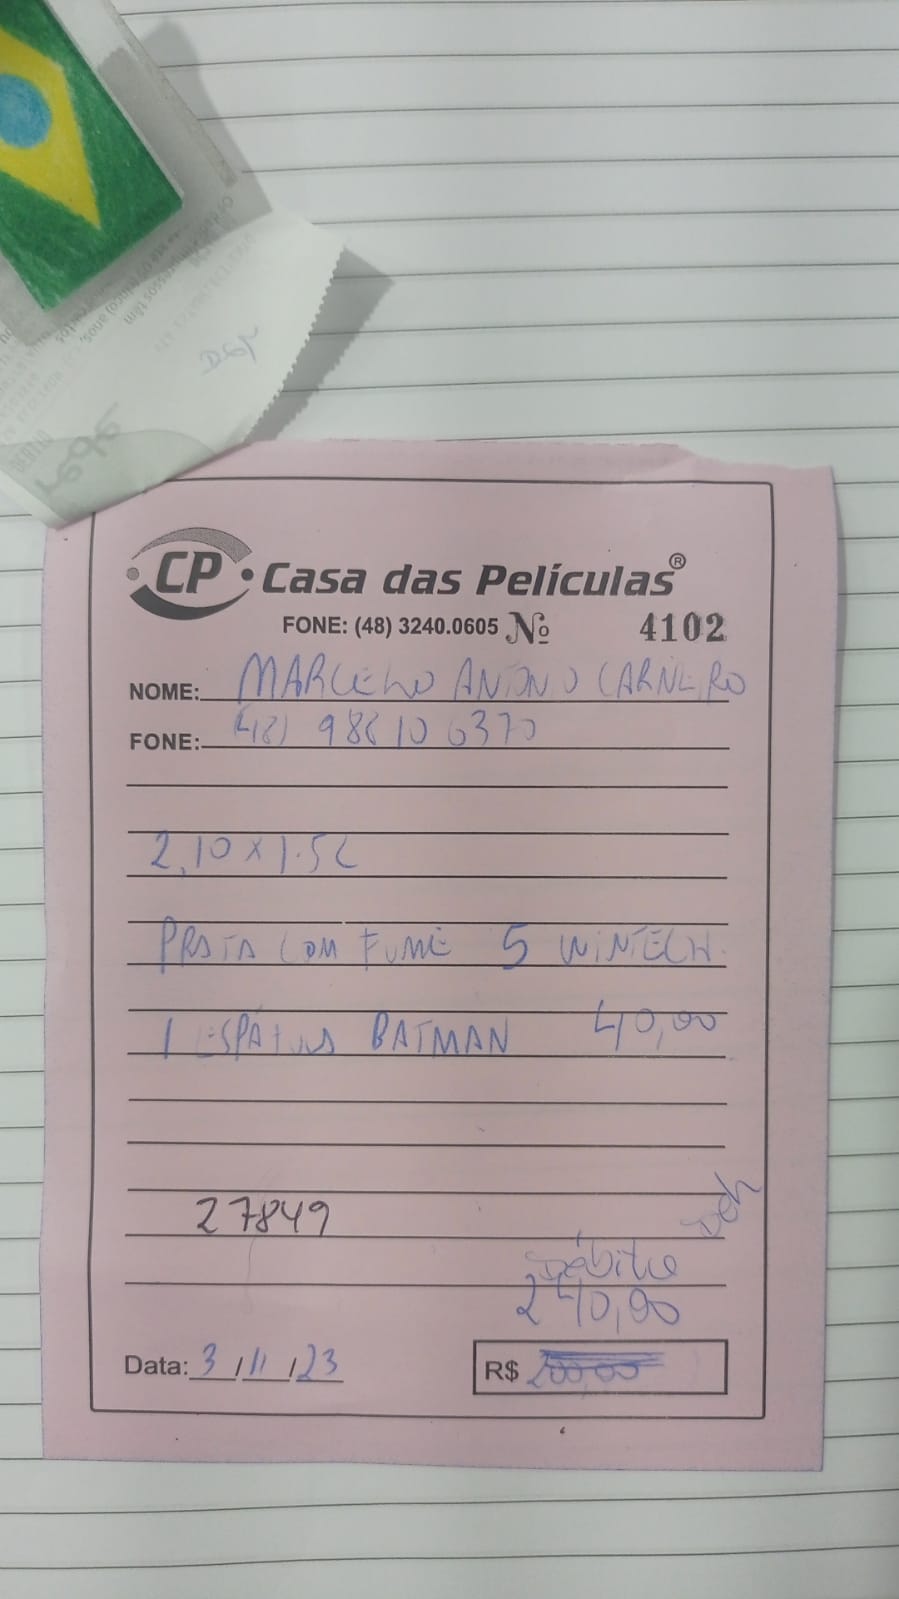 Deh
rede
CP Casa das Películas®
FONE: (48) 3240.0605 Nº 4102
NOME: MARCELO ANTONIO CARNEIRO
FONE: (48) 98810 6370
2,10 x 1.52
PRATA COM FUMÊ 5 WINTECH
1 ESPÁTULA BATMAN 40,00
27849
Deh
Débito
240,00
Data: 3/11/23
R$ 200,00